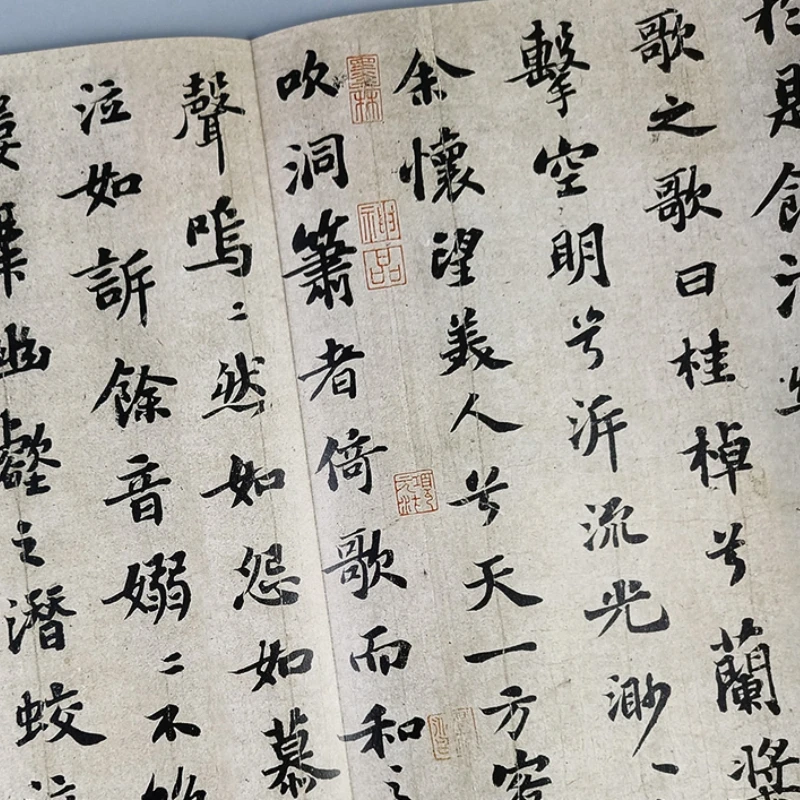 於是飲酒
歌之歌曰桂棹兮蘭槳
擊空明兮泝流光渺
余懷望美人兮天一方客
吹洞簫者倚歌而和之
聲嗚〻然如怨如慕
泣如訴餘音嫋〻不絕
縷舞幽壑之潛蛟泣
墨林
神品